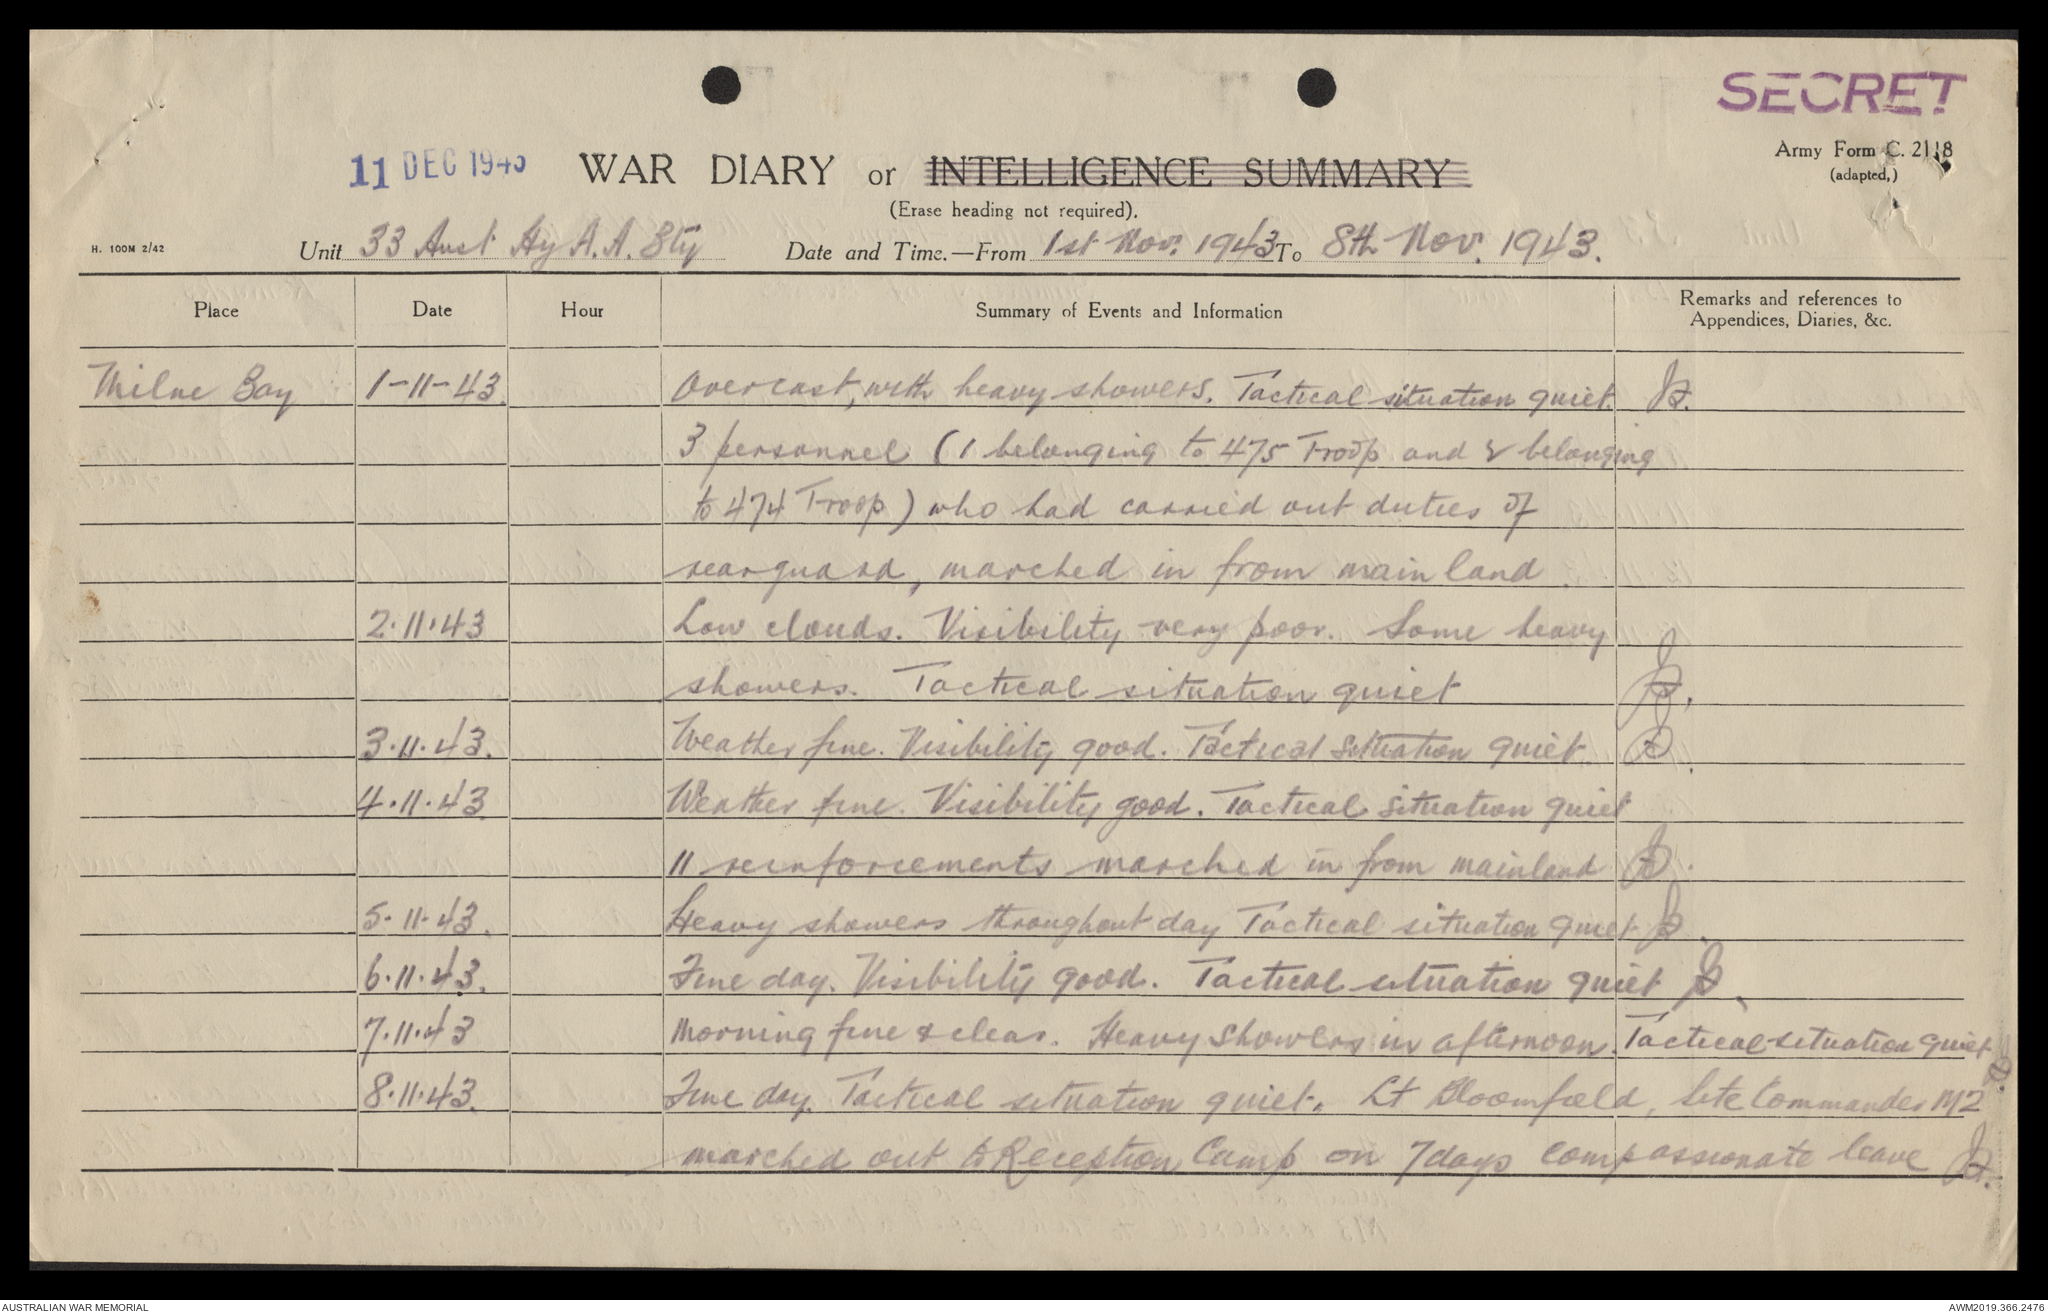 SECRET
Army Form C. 2118
(adapted.)
11 DEC 1943 WAR DIARY or INTELLIGENCE SUMMARY
(Erase heading not required).
H. 100M 2/42
Unit 33 Aust Hy A.A. Bty Date and Time.—From 1st Nov. 1943 To 8th Nov. 1943.
Place Date Hour Summary of Events and Information Remarks and references to Appendices, Diaries, &c.
Milne Bay 1-11-43. Overcast, with heavy showers. Tactical situation quiet.
3 personnel (1 belonging to 475 Troop and 2 belonging
to 474 Troop) who had carried out duties of
rearguard, marched in from mainland.
2.11.43 Low clouds. Visibility very poor. Some heavy
showers. Tactical situation quiet
3.11.43. Weather fine. Visibility good. Tactical situation quiet.
4.11.43. Weather fine. Visibility good. Tactical situation quiet
11 reinforcements marched in from mainland
5.11.43. Heavy showers throughout day Tactical situation quiet
6.11.43. Fine day. Visibility good. Tactical situation quiet
7.11.43 Morning fine & clear. Heavy showers in afternoon. Tactical situation quiet
8.11.43. Fine day. Tactical situation quiet. Lt Bloomfield, Site Commander M2
marched out to Reception Camp on 7 days compassionate leave
AUSTRALIAN WAR MEMORIAL
AWM2019.366.2476